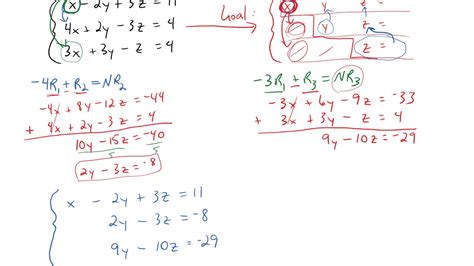 x - 2y + 3z = 11
4x + 2y - 3z = 4
3x + 3y - z = 4
Goal:
x y z =
y z =
z =
-4R₁ + R₂ = NR₂
-4x + 8y - 12z = -44
+ 4x + 2y - 3z = 4
10y - 15z = -40
5 5
2y - 3z = -8
-3R₁ + R₃ = NR₃
-3x + 6y - 9z = -33
+ 3x + 3y - z = 4
9y - 10z = -29
x - 2y + 3z = 11
2y - 3z = -8
9y - 10z = -29